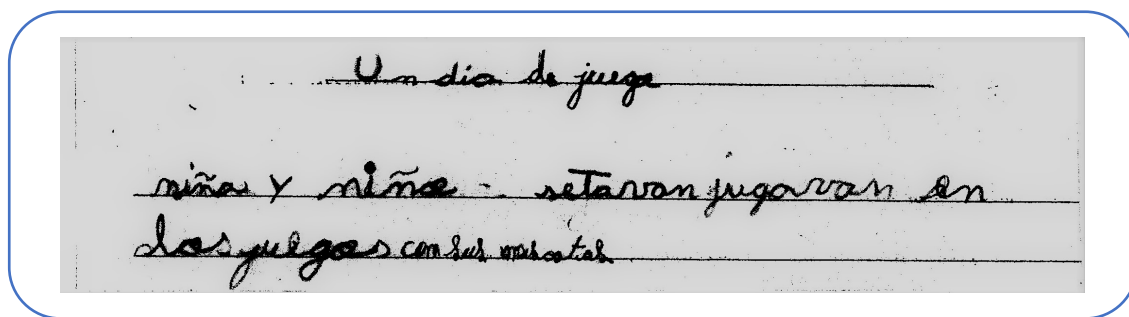 Un dia de juego
niña y niño - setavan jugavan en
los juegos con sus mascotas